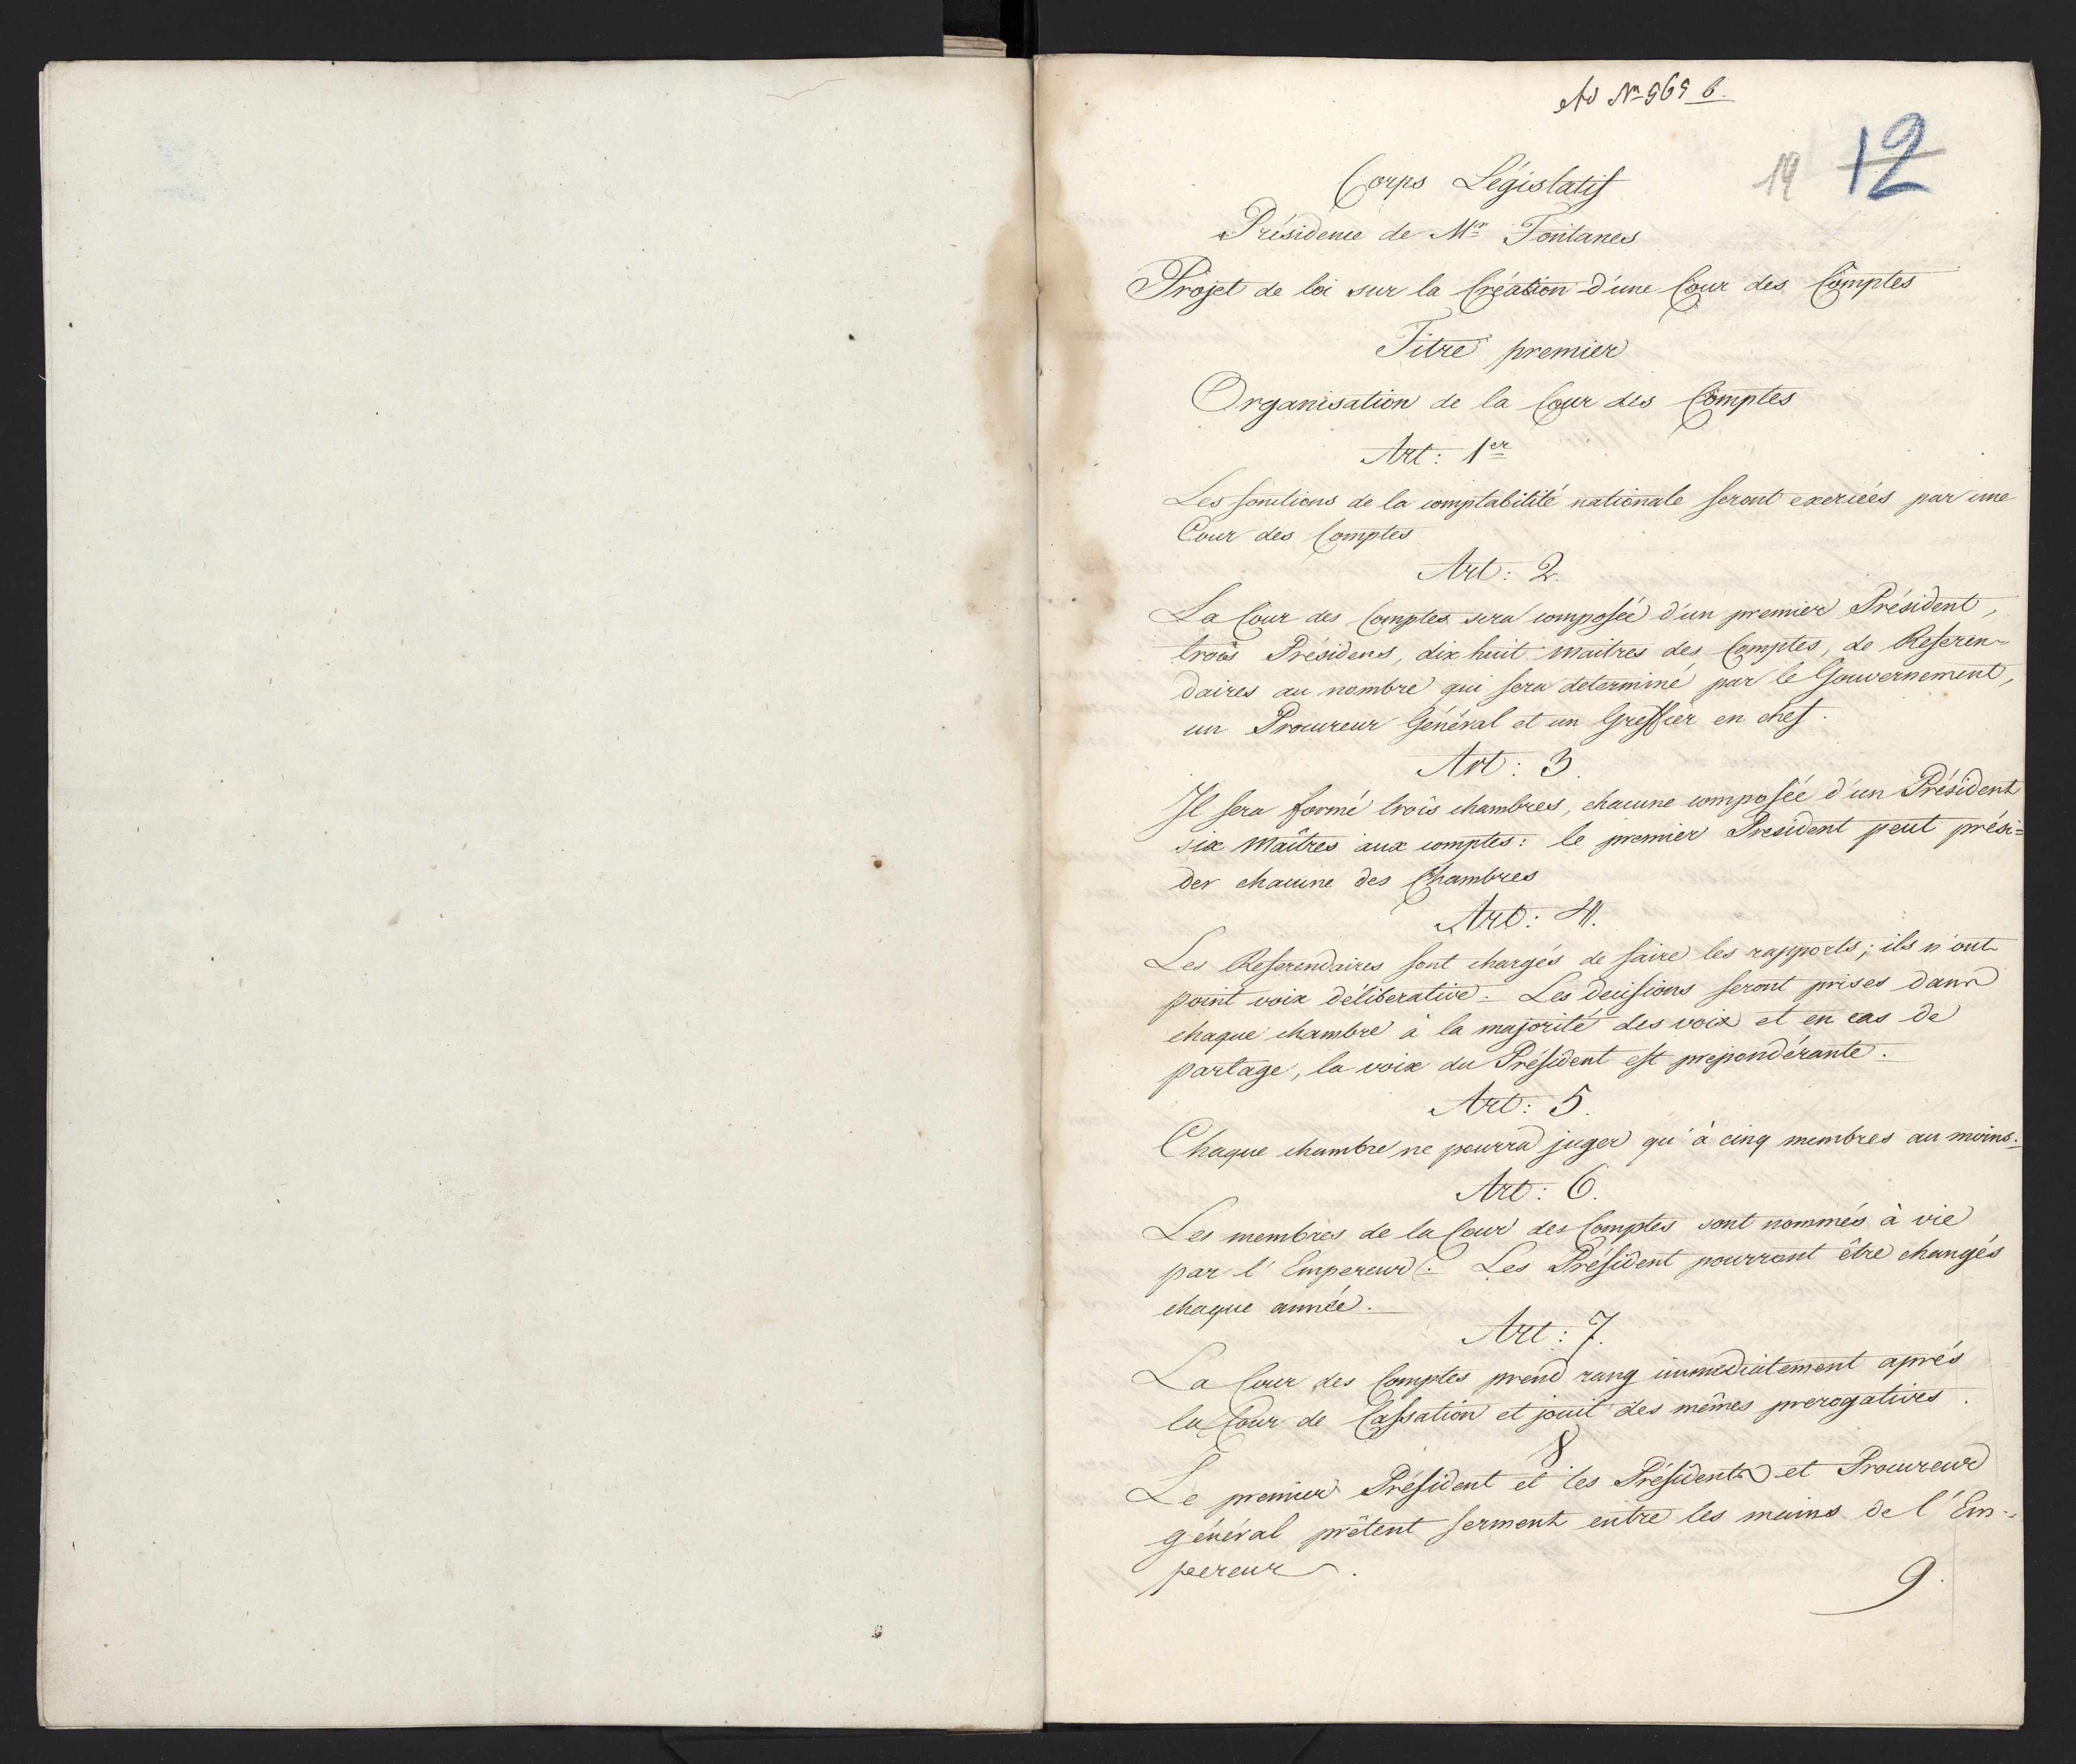 Ad No 969 b.
19 12
Corps Législatif
Présidence de Mr Fontanes
Projet de loi sur la Création d'une Cour des Comptes
Titre premier
Organisation de la Cour des Comptes
Art: 1er
Les fonctions de la comptabilité nationale seront exercées par une
Cour des Comptes
Art: 2.
La Cour des Comptes sera composée d'un premier Président,
trois Présidens, dix huit maitres des Comptes, de Referen-
daires au nombre qui sera determiné par le Gouvernement,
un Procureur Général et un Greffier en chef.
Art: 3.
Il sera formé trois chambres, chacune composée d'un Président
six Maîtres aux comptes: le premier President peut prési=
der chacune des Chambres
Art: 4.
Les Referendaires sont chargés de faire les rapports; ils n'ont
point voix déliberative. Les decisions seront prises dans
chaque chambre à la majorité des voix et en cas de
partage, la voix du Président est prepondérante.
Art: 5.
Chaque chambre ne pourra juger qu'à cinq membres au moins.
Art: 6.
Les membres de la Cour des Comptes sont nommés à vie
par l'Empereur. Les Président pourront être changés
chaque année.
Art: 7.
La Cour des Comptes prend rang immediatement aprés
la Cour de Cassation et jouit des mêmes prerogatives.
8
Le premier Président et les Présidents et Procureur
général prêtent serment entre les mains de l'Em=
pereur.
9.